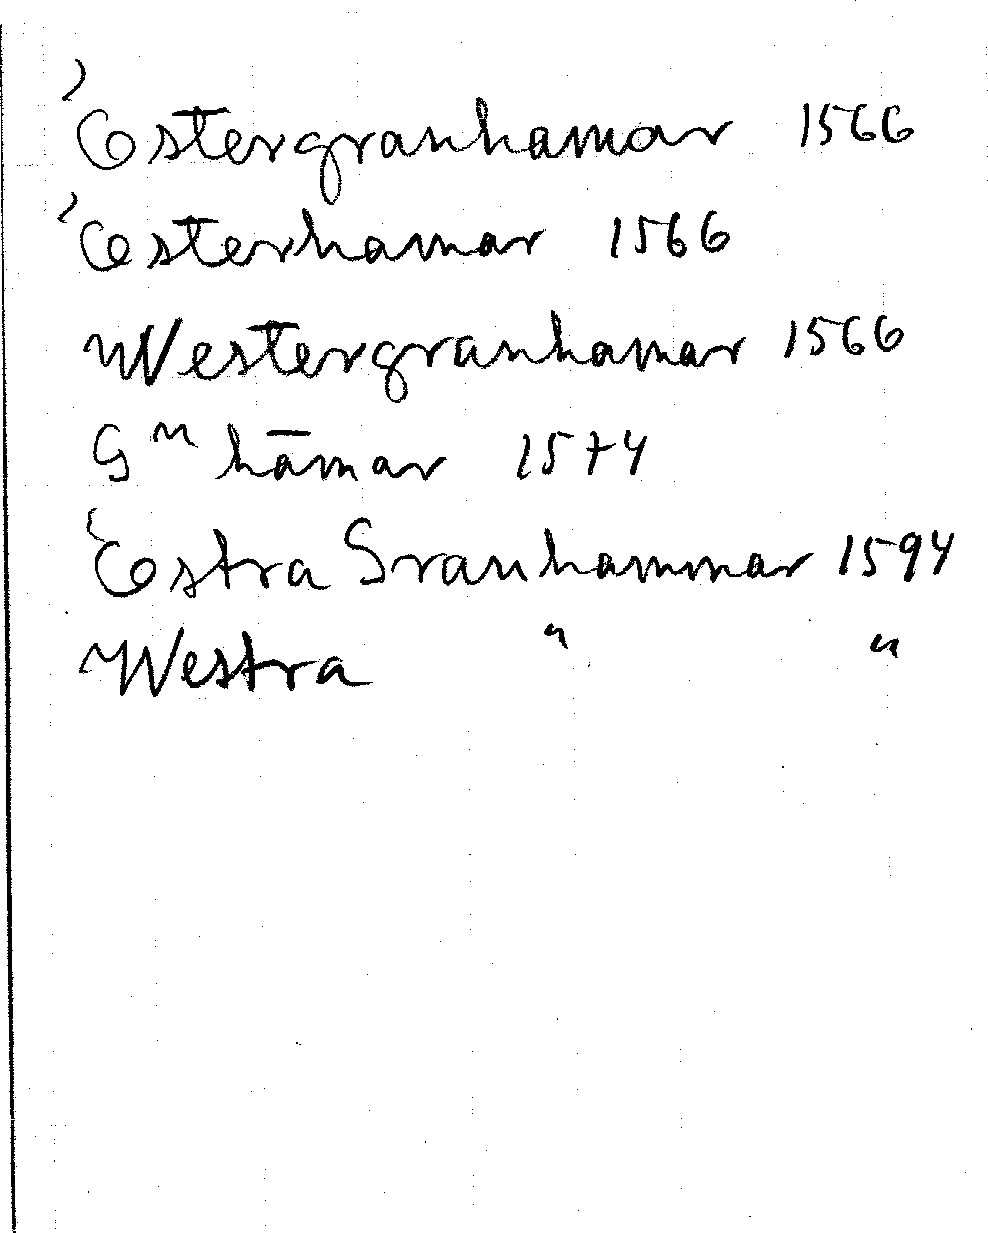 Östergranhamar 1566
Österhamar 1566
Westergranhamar 1566
G ͫ hām̄ar 1574
Östra Granhammar 1594
Westra " "